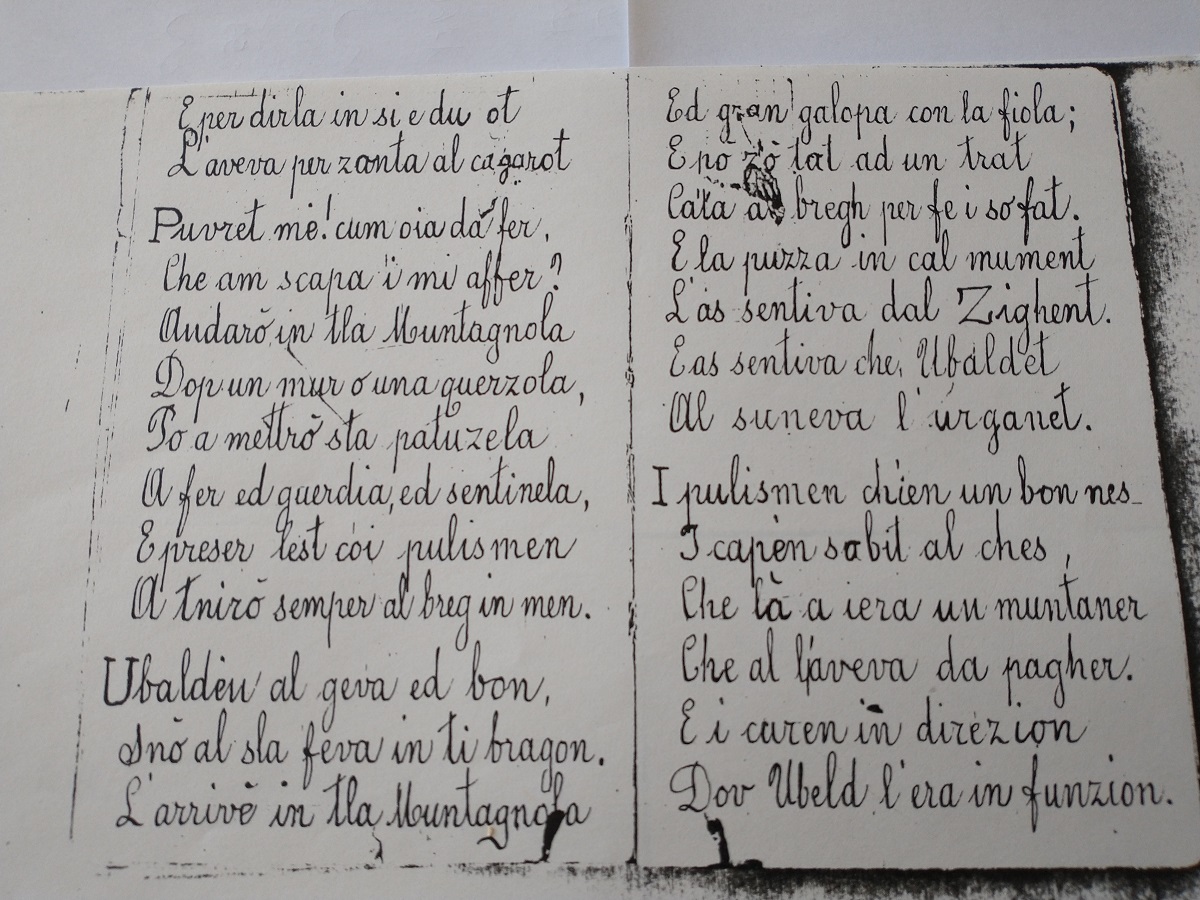 E per dirla in si e du ot
L'aveva per zanta al cagarot
Puvret mè! cum oia da fer,
Che am scapa i mi affer?
Andarò in tla Muntagnola
Dop un mur o una querzola,
Po a mettrò sta patuzela
A fer ed guerdia, ed sentinela,
E preser lest coi pulismen
A tnirò semper al breg in men.
Ubaldèin al geva ed bon,
Snò al sla feva in ti bragon.
L'arrivè in tla Muntagnola
Ed gran galopa con la fiola;
E po zò tat ad un trat
Cala al bregh per fe i so fat.
E la puzza in cal mument
L'as sentiva dal Zighent.
E as sentiva che, Ubaldet
Al suneva l'urganet.
I pulismen ch'ien un bon nes
I capèn sobit al ches,
Che là a iera un muntaner
Che al l'aveva da pagher.
E i curen in direzion
Dov Ubeld l'era in funzion.